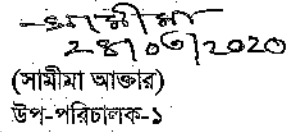 ২৪/০৬/২০২০
(সামীমা আক্তার)
উপ-পরিচালক-১